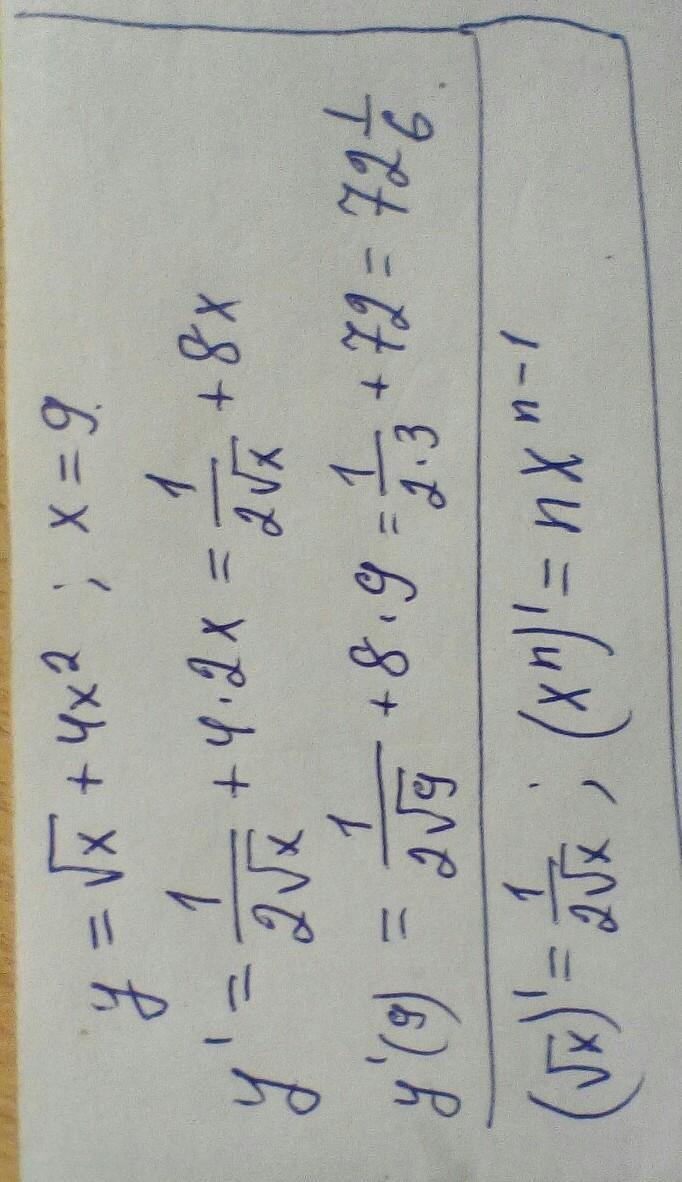 y = √x + 4x² ; x = 9.
y' = 1/(2√x) + 4·2x = 1/(2√x) + 8x
y'(9) = 1/(2√9) + 8·9 = 1/(2·3) + 72 = 72 1/6
(√x)' = 1/(2√x) ; (xⁿ)' = nxⁿ⁻¹